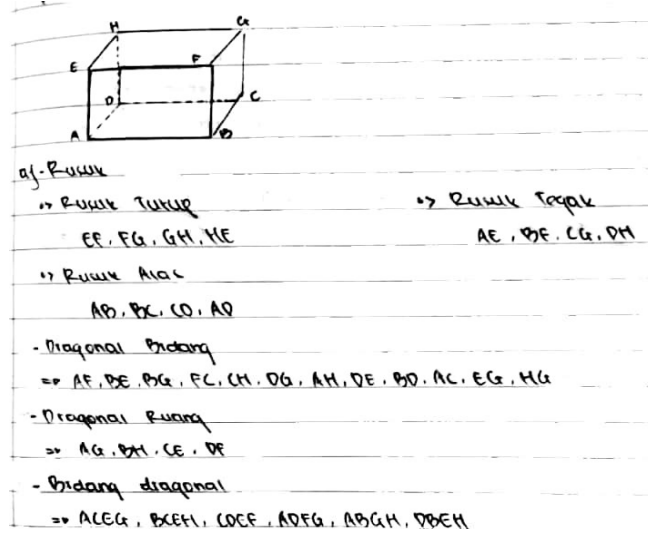 H G
E F
D C
A B
a). Rusuk
•> Rusuk Tutup •> Rusuk Tegak
EF, FG, GH, HE AE, BF, CG, DH
•> Rusuk Alas
AB, BC, CD, AD
- Diagonal Bidang
=> AF, BE, BG, FC, CH, DG, AH, DE, BD, AC, EG, HG
- Diagonal Ruang
=> AG, BH, CE, DF
- Bidang diagonal
=> ACEG, BCEH, CDEF, ADFG, ABGH, DBEH